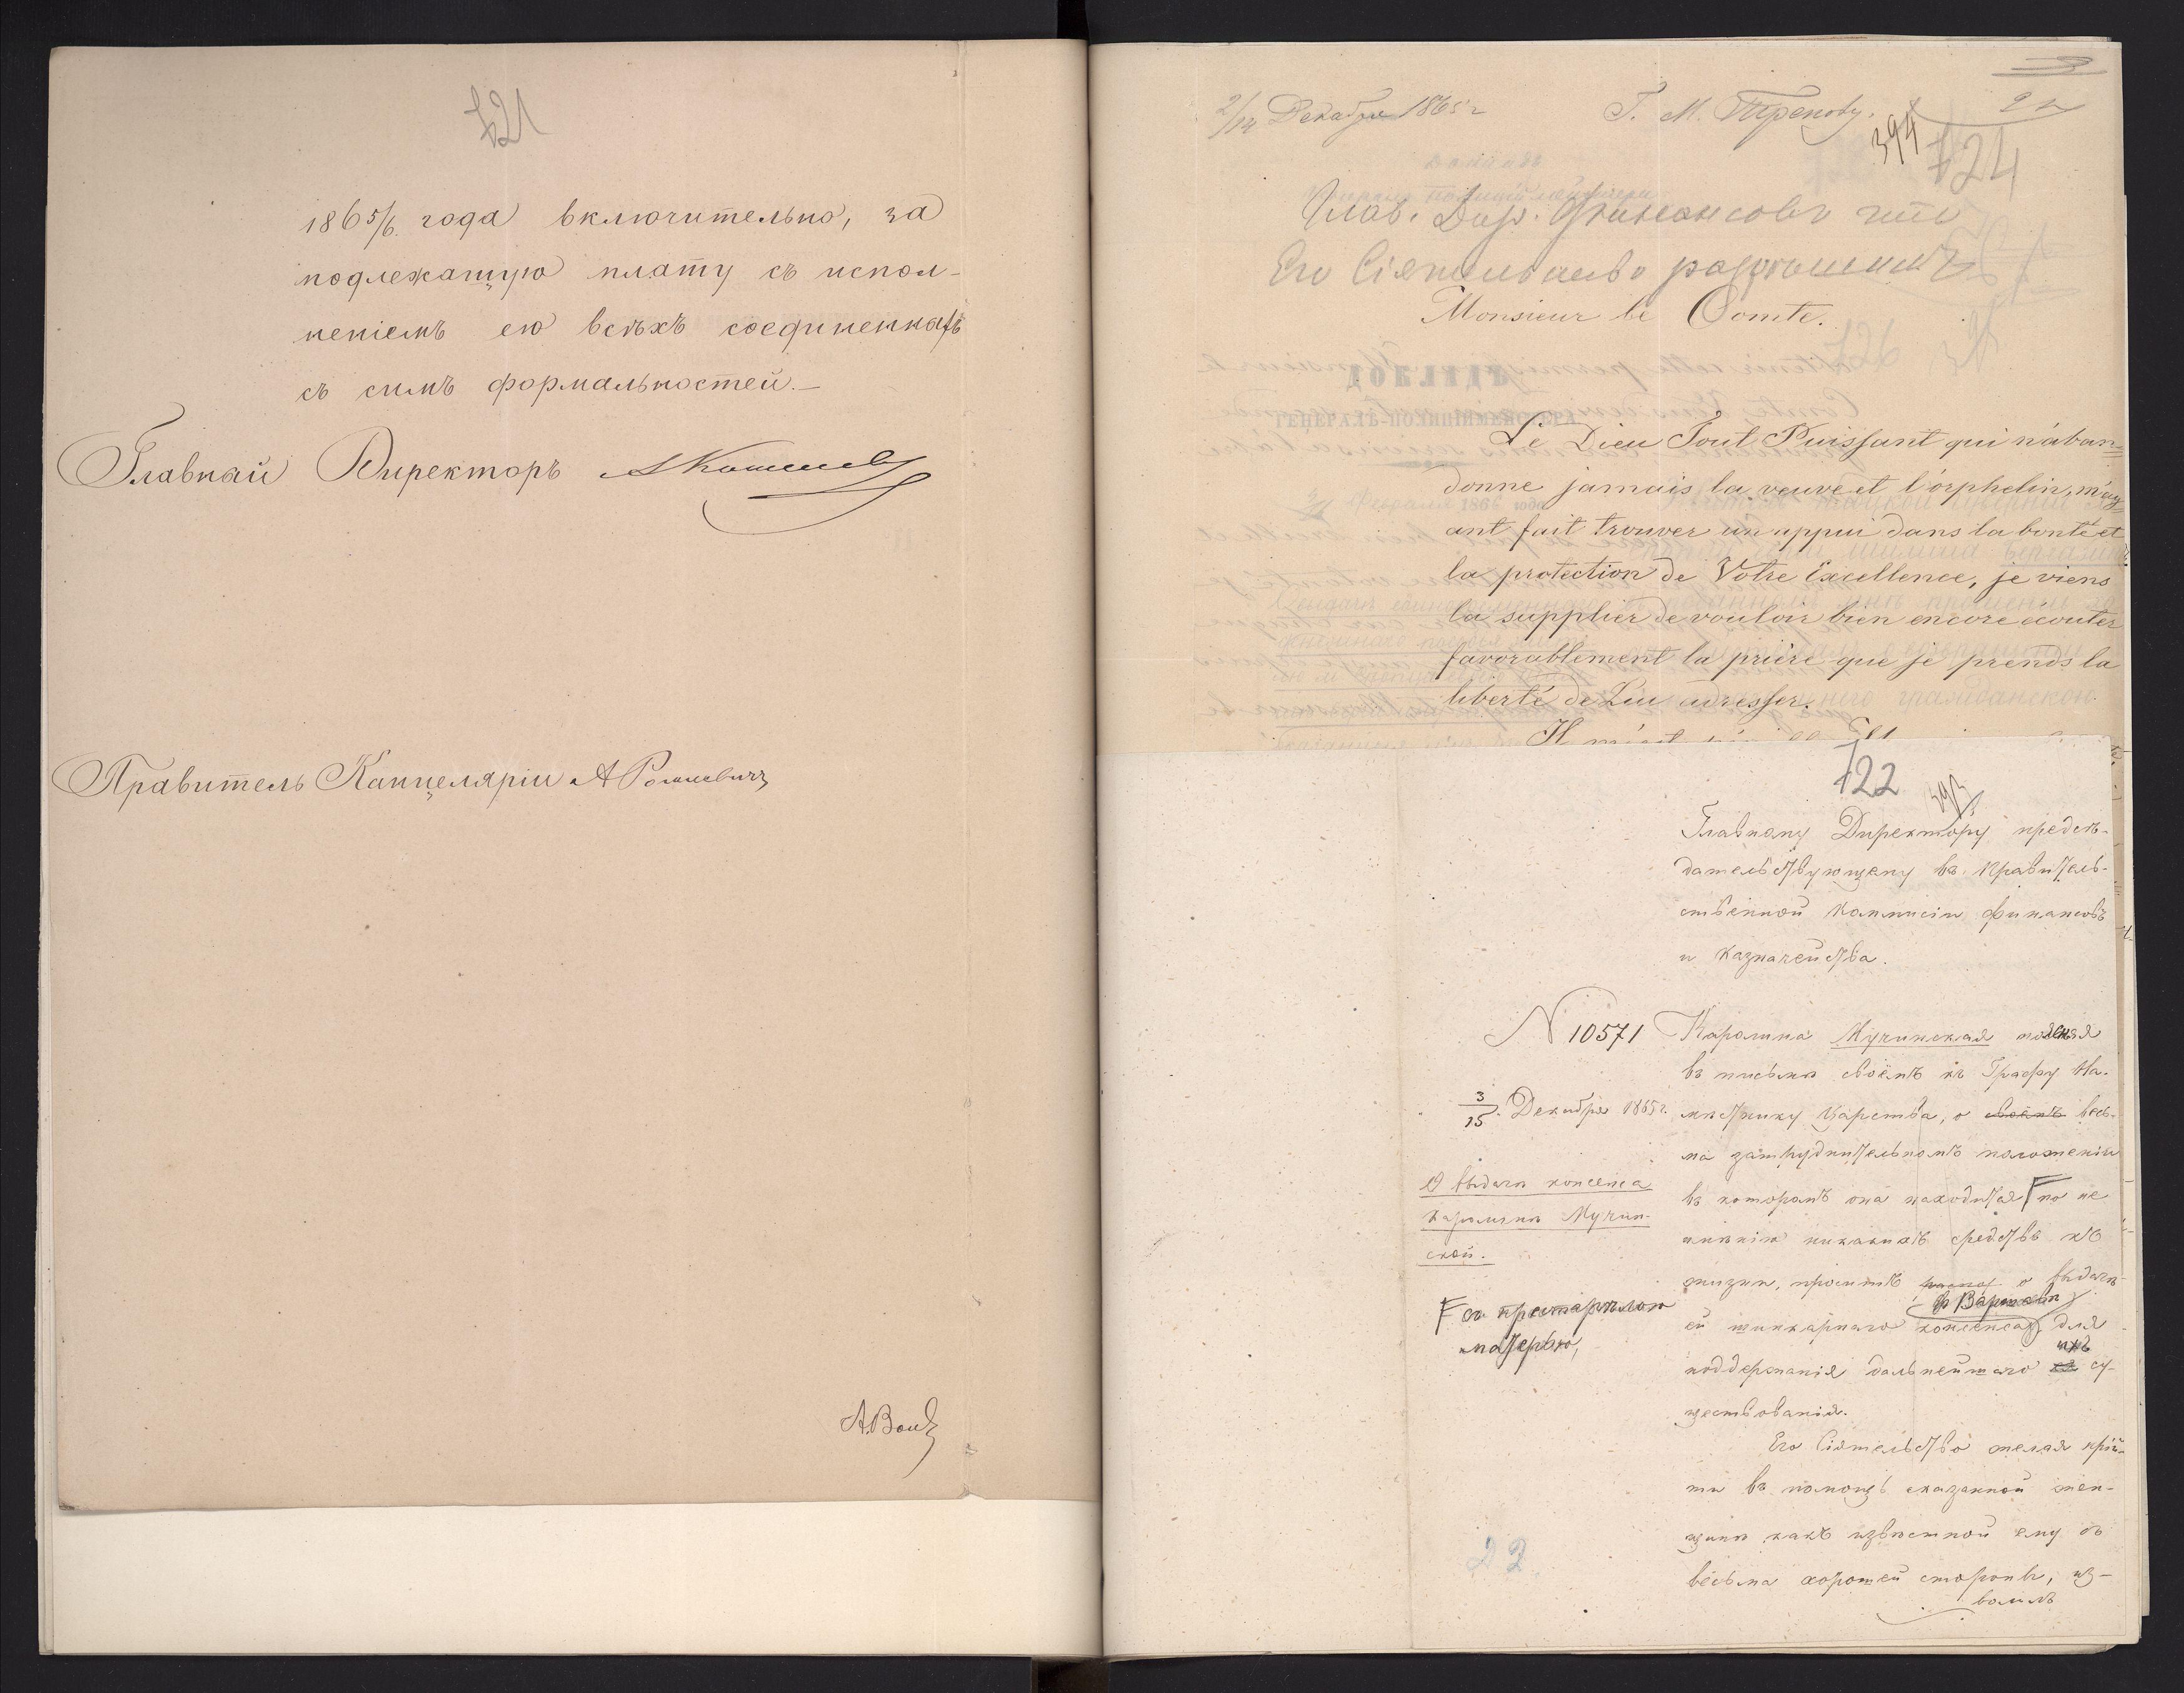 121
1865/6. года включительно, за
подлежащую плату съ испол-
неніемъ ею всѣхъ соединенныхъ
съ симъ формальностей.—
Главный Директоръ АКошелевъ
Правитель Канцеляріи А
2/14 Декабря 1865 г
Г. М. Трепову.
394
124
Глав. Дир. Финансовъ что
Его Сіятельство разрѣшилъ
Monsieur le Comte.
Le Dieu Tout Puissant qui n'aban=
donne jamais la veuve et l'orphelin, m'ay=
ant fait trouver un appui dans la bonté et
la protection de Votre Excellence, je viens
la supplier de vouloir bien encore écouter
favorablement la prière que je prends la
liberté de Lui adresser.
122
393
Главному Директору предсѣ-
дательствующему въ Правитель-
ственной Коммисіи финансовъ
и казначейства.
N 10571
3/15 Декабря 1865 г.
О выдачѣ консенса
Каролинѣ Мучин-
ской.
F съ престарѣлою
матерью,
Каролина Мучинская
въ письмѣ своёмъ къ Графу На-
мѣстнику Царства, о своемъ весь-
ма затруднительномъ положеніи
въ которомъ она находится F по не
имѣнію никакихъ средствъ къ
жизни, проситъ о выдачѣ
въ Варшавѣ
ей шинкарнаго консенса, для
ихъ
поддержанія дальнейшаго ея су-
ществованія.
Его Сіятельство желая прій-
ти въ помощь сказанной жен-
щинѣ какъ извѣстной ему съ
весьма хорошей стороны, из-
волилъ
22